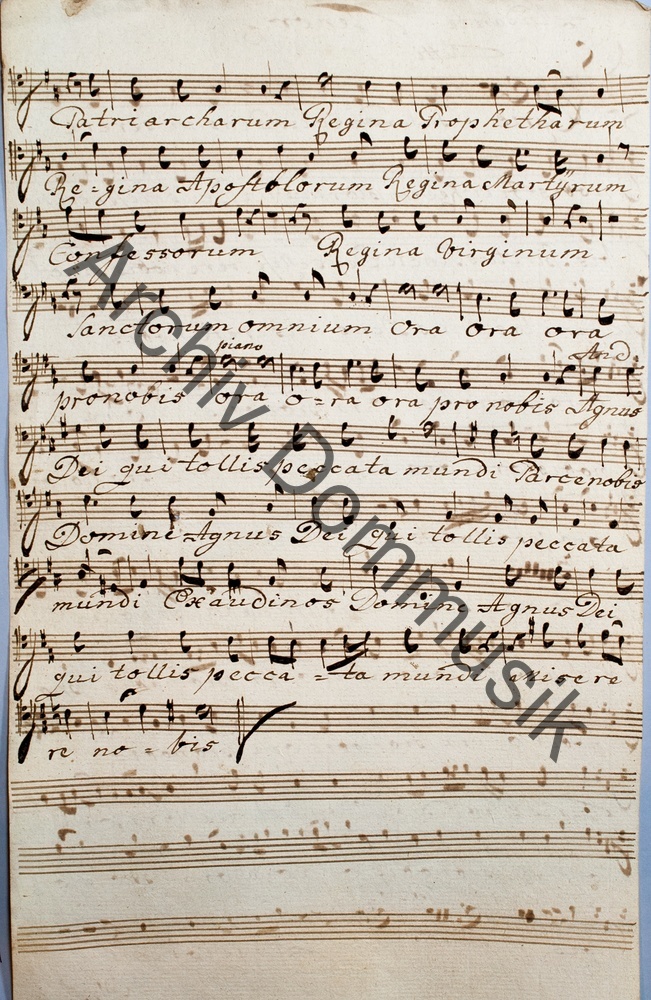 Patriarcharum Regina Prophetharum
Re=gina Apostolorum Regina Martÿrum
Confessorum Regina Virginum
Sanctorum omnium Ora Ora ora
piano And:
pronobis ora o=ra ora pro nobis Agnus
Dei qui tollis peccata mundi Parcenobis
Domine Agnus Dei qui tollis peccata
mundi Exaudinos Domine Agnus Dei
qui tollis pecca=ta mundi Misere
re no=bis
Archiv Dommusik